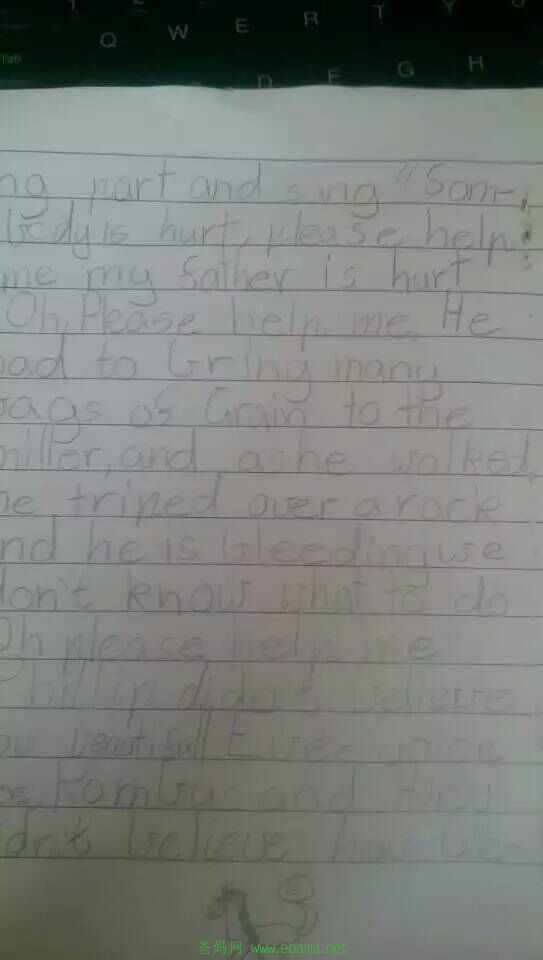 Q W E R T Y
Tab
D F G H
ng part and sing "Som-
body is hurt, please help
me my father is hurt
Oh, Please help me. He
had to bring many
bags of Grain to the
miller, and as he walked,
he triped over a rock
and he is bleeding we
don't know what to do
Oh please help me"
Phillip didn't believe
beautifull voice
and
didn't believe how be-
爸妈网 www.ebama.net